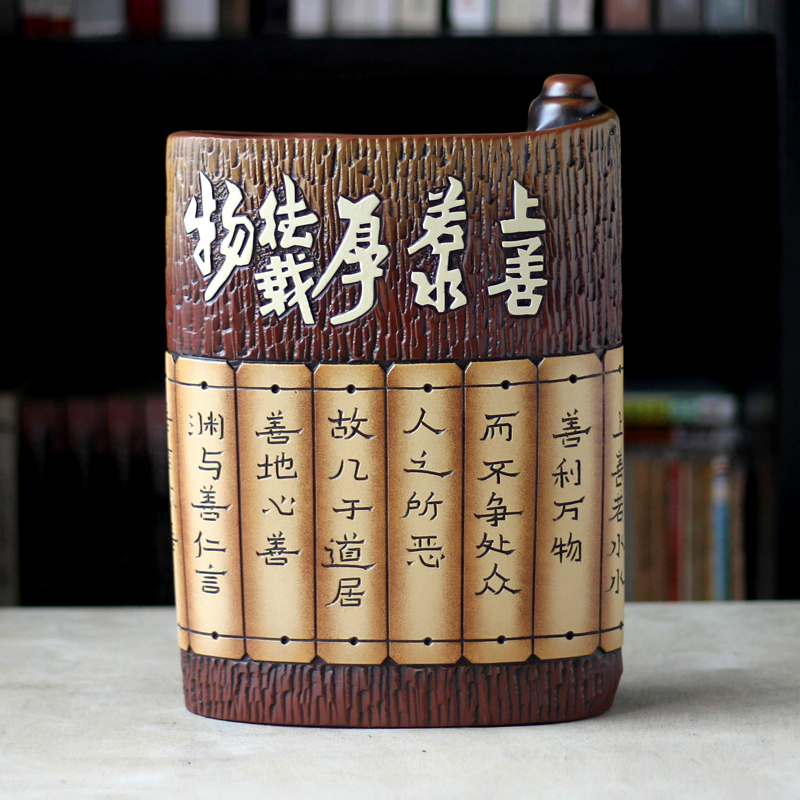 上善若水厚德载物
上善若水水
善利万物
而不争处众
人之所恶
故几于道居
善地心善
渊与善仁言